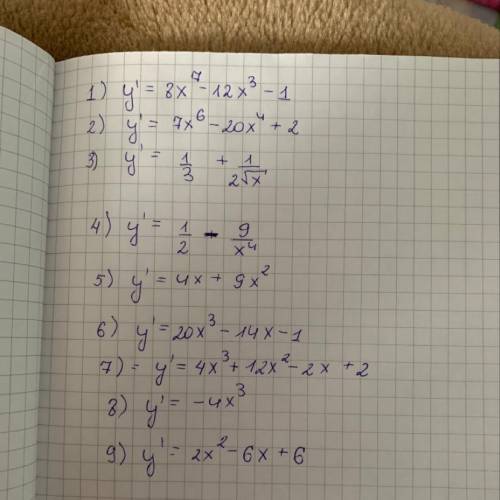 1) y' = 8x⁷ - 12x³ - 1
2) y' = 7x⁶ - 20x⁴ + 2
3) y' = 1/3 + 1/(2√x)
4) y' = 1/2 - 9/x⁴
5) y' = 4x + 9x²
6) y' = 20x³ - 14x - 1
7) = y' = 4x³ + 12x² - 2x + 2
8) y' = -4x³
9) y' = 2x² - 6x + 6